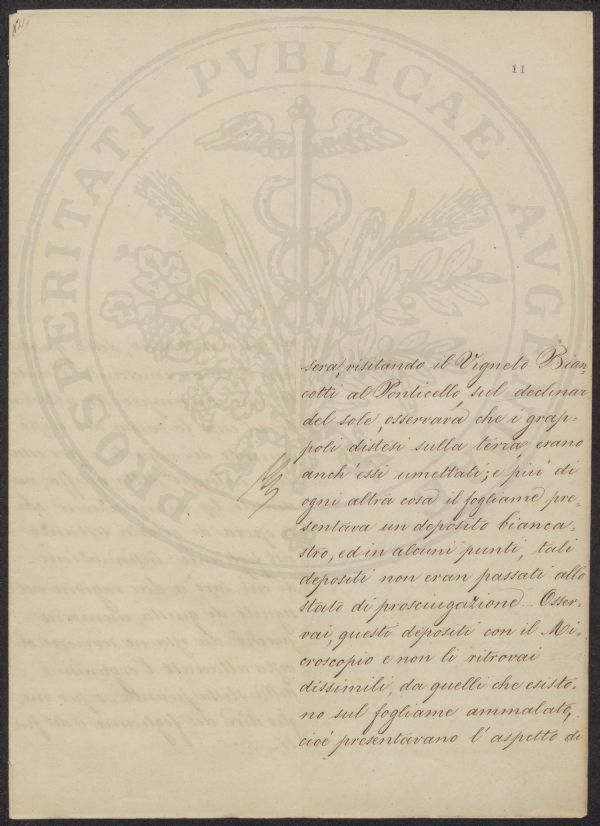 11
PROSPERITATI PVBLICAE AVGE
sera, visitando il Vigneto Bian-
cotti al Ponticello, sul declinar
del sole, osservava che i grap-
poli distesi sulla terra, erano
anch'essi umettati; e più di
ogni altra cosa il fogliame pre-
sentava un deposito bianca-
stro, ed in alcuni punti, tali
depositi non eran passati allo
stato di prosciugazione. Osser-
vai, questi depositi con il Mi-
croscopio e non li ritrovai
dissimili, da quelli che esisto-
no sul fogliame ammalato,
cioè presentavano l'aspetto di